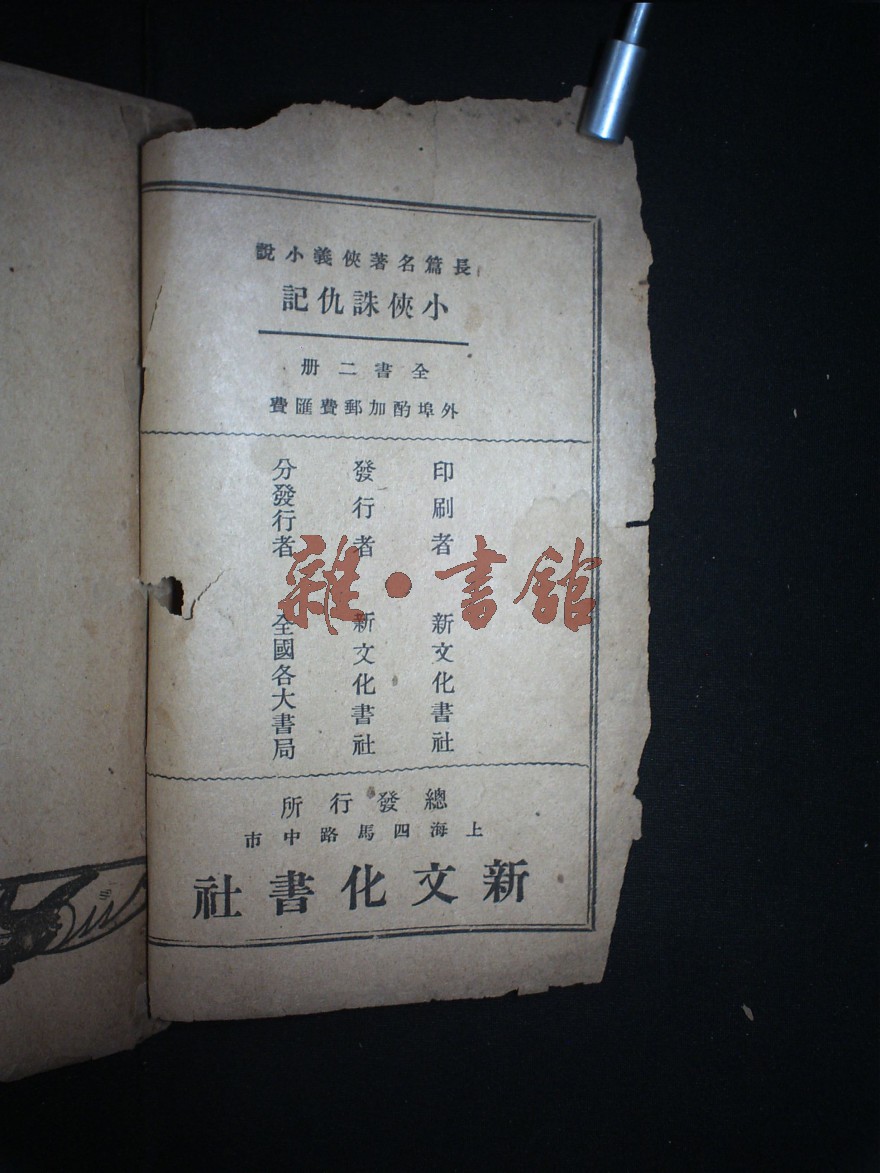 長篇名著俠義小說
小俠誅仇記
全書二册
外埠酌加郵費匯費
印刷者 新文化書社
發行者 新文化書社
分發行者 全國各大書局
總發行所
上海四馬路中市
新文化書社
雜·書館